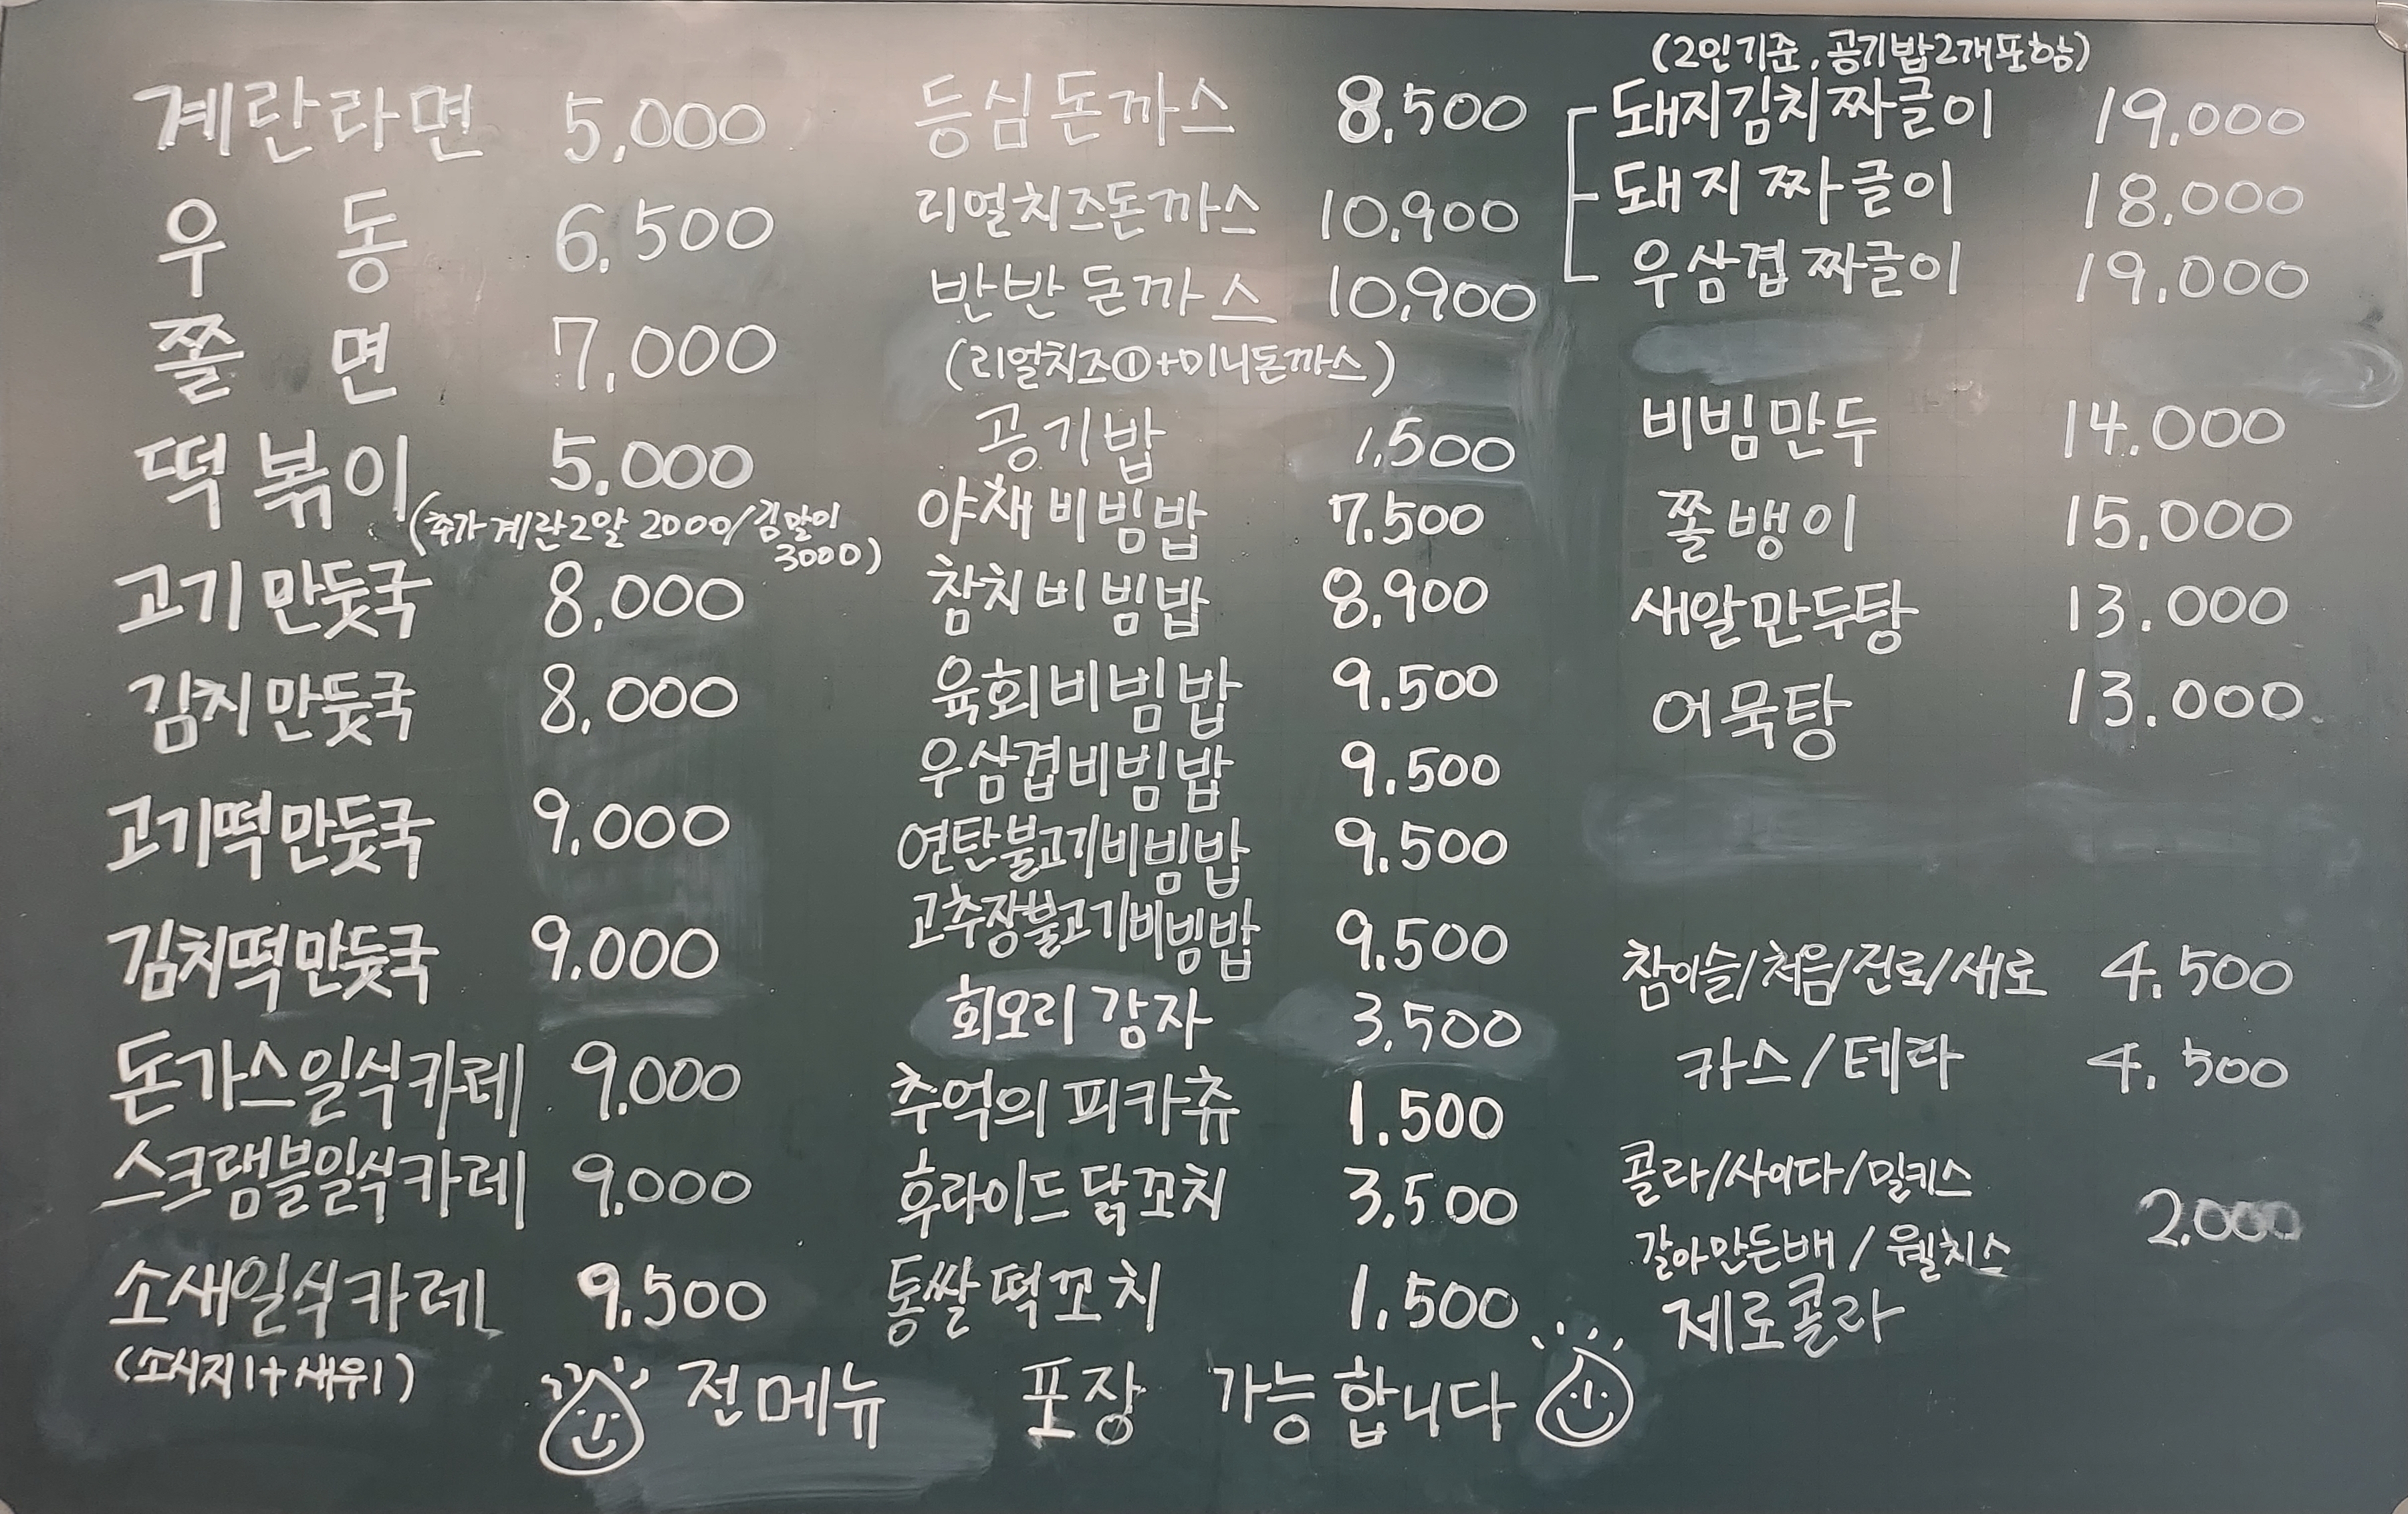 계란라면 5,000
우 동 6,500
쫄 면 7,000
떡볶이 5,000
(추가 계란2알 2000/김말이
3000)
고기만둣국 8,000
김치만둣국 8,000
고기떡만둣국 9,000
김치떡만둣국 9,000
돈가스일식카레 9,000
스크램블일식카레 9,000
소새일식카레 9,500
(소시지1+새우1)
등심돈까스 8,500
리얼치즈돈까스 10,900
반반돈까스 10,900
(리얼치즈①+미니돈까스)
공기밥 1,500
야채비빔밥 7.500
참치비빔밥 8,900
육회비빔밥 9.500
우삼겹비빔밥 9.500
연탄불고기비빔밥 9.500
고추장불고기비빔밥 9.500
회오리감자 3,500
추억의 피카츄 1.500
후라이드닭꼬치 3,500
통쌀떡꼬치 1,500
(2인기준, 공기밥2개포함)
돼지김치짜글이 19,000
돼지짜글이 18.000
우삼겹짜글이 19.000
비빔만두 14.000
쫄뱅이 15,000
새알만두탕 13.000
어묵탕 13.000
참이슬/처음/진로/새로 4.500
카스/테라 4.500
콜라/사이다/밀키스
갈아만든배/웰치스 2.000
제로콜라
전메뉴 포장 가능합니다